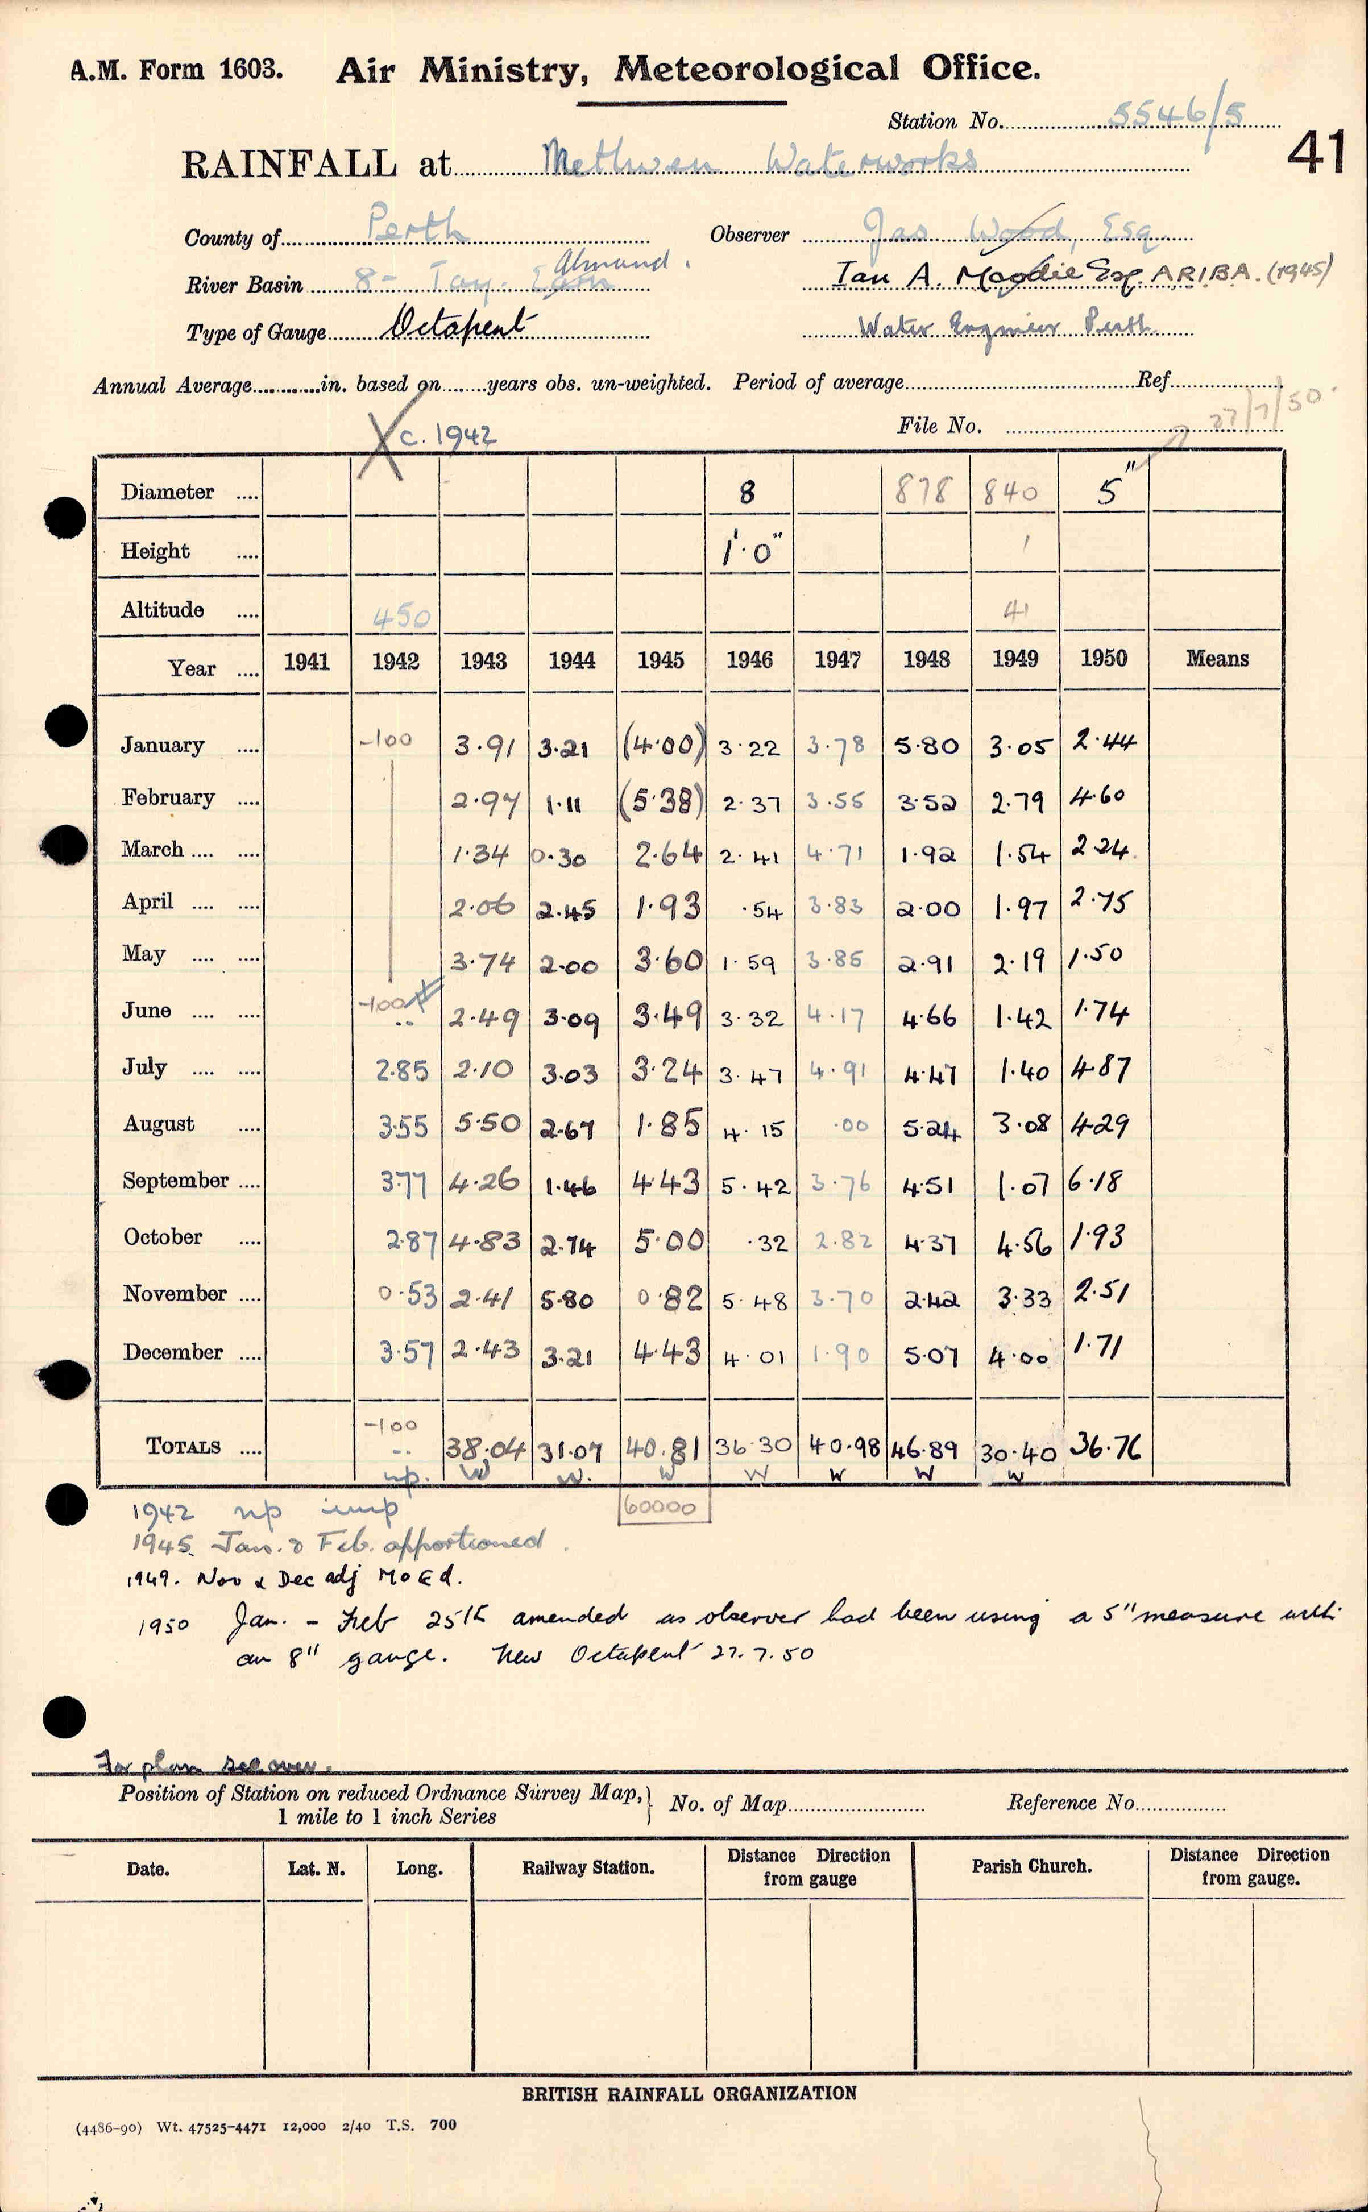 A.M. Form 1603. Air Ministry, Meteorological Office.
Station No. 5546/5
41
RAINFALL at Methven Waterworks
County of Perth Observer Jas Wood, Esq
River Basin 8- Tay. Earn Almond. Ian A. Moodie Esq. ARIBA. (1945)
Type of Gauge Octapent Water Engineer Perth
Annual Average in. based on years obs. un-weighted. Period of average Ref
File No. 27/7/50
X c. 1942
Diameter .... 8 878 840 5"
Height .... 1'·0" 1
Altitude .... 450 41
Year .... 1941 1942 1943 1944 1945 1946 1947 1948 1949 1950 Means
January .... -100 3·91 3·21 (4·00) 3·22 3·78 5·80 3·05 2·44
February .... 2·97 1·11 (5·38) 2·37 3·55 3·52 2·79 4·60
March .... .... 1·34 0·30 2·64 2·41 4·71 1·92 1·54 2·24
April .... .... 2·06 2·45 1·93 ·54 3·83 2·00 1·97 2·75
May .... .... 3·74 2·00 3·60 1·59 3·85 2·91 2·19 1·50
June .... .... -100 2·49 3·09 3·49 3·32 4·17 4·66 1·42 1·74
July .... .... 2·85 2·10 3·03 3·24 3·47 4·91 4·47 1·40 4·87
August .... 3·55 5·50 2·67 1·85 4·15 ·00 5·24 3·08 4·29
September .... 3·77 4·26 1·46 4·43 5·42 3·76 4·51 1·07 6·18
October .... 2·87 4·83 2·74 5·00 ·32 2·82 4·37 4·56 1·93
November .... 0·53 2·41 5·80 0·82 5·48 3·70 2·42 3·33 2·51
December .... 3·57 2·43 3·21 4·43 4·01 1·90 5·07 4·00 1·71
-100
TOTALS .... 38·04 31·07 40·81 36·30 40·98 46·89 30·40 36·76
np. W W. W W W W W
60000
1942 np imp
1945 Jan. & Feb. apportioned.
1949. Nov & Dec adj Mo Ed.
1950 Jan. - Feb 25th amended as observer had been using a 5" measure with
an 8" gauge. New Octapent 27.7.50
For plan see over.
Position of Station on reduced Ordnance Survey Map,} No. of Map Reference No.
1 mile to 1 inch Series
Date. Lat. N. Long. Railway Station. Distance from gauge Direction Parish Church. Distance from gauge. Direction
BRITISH RAINFALL ORGANIZATION
(4486-90) Wt. 47525-4471 12,000 2/40 T.S. 700